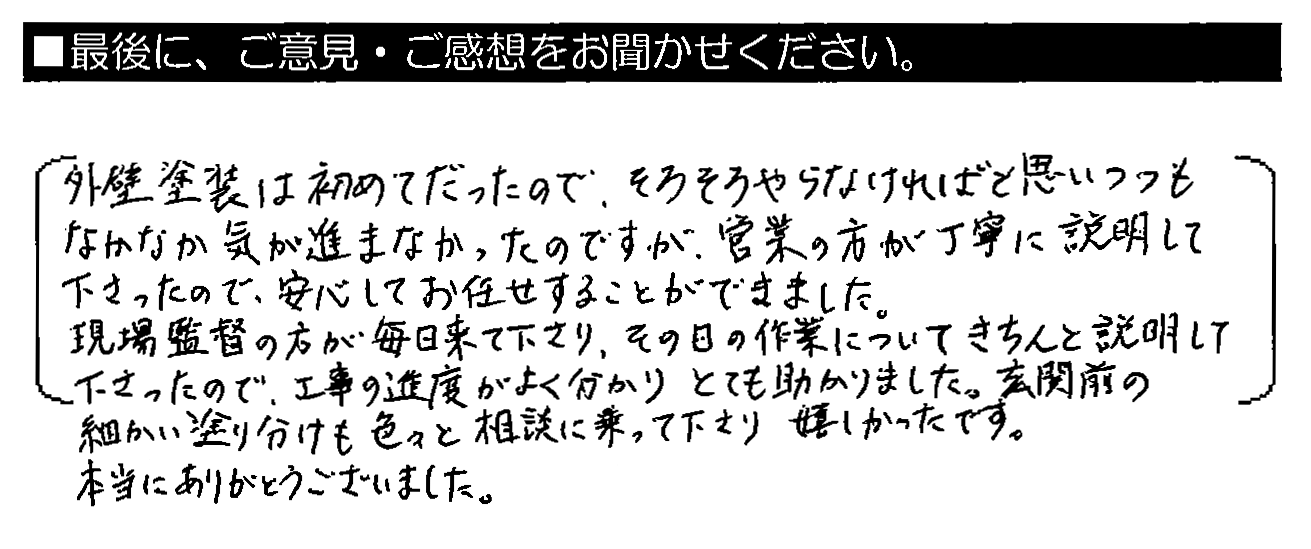 ■最後に、ご意見・ご感想をお聞かせください。
外壁塗装は初めてだったので、そろそろやらなければと思いつつも
なかなか気が進まなかったのですが、営業の方が丁寧に説明して
下さったので、安心してお任せすることができました。
現場監督の方が毎日来て下さり、その日の作業についてきちんと説明して
下さったので、工事の進度がよく分かり とても助かりました。玄関前の
細かい塗り分けも色々と相談に乗って下さり 嬉しかったです。
本当にありがとうございました。